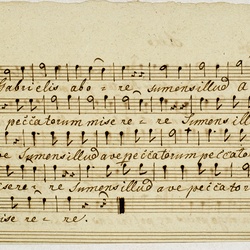 Gabrielis abo = re sumens illud a
peccatorum mise re = re Sumens ill
ve Sumens illud ave peccatorum peccato
isere = re Sumens illud ave peccator
ise re = re.